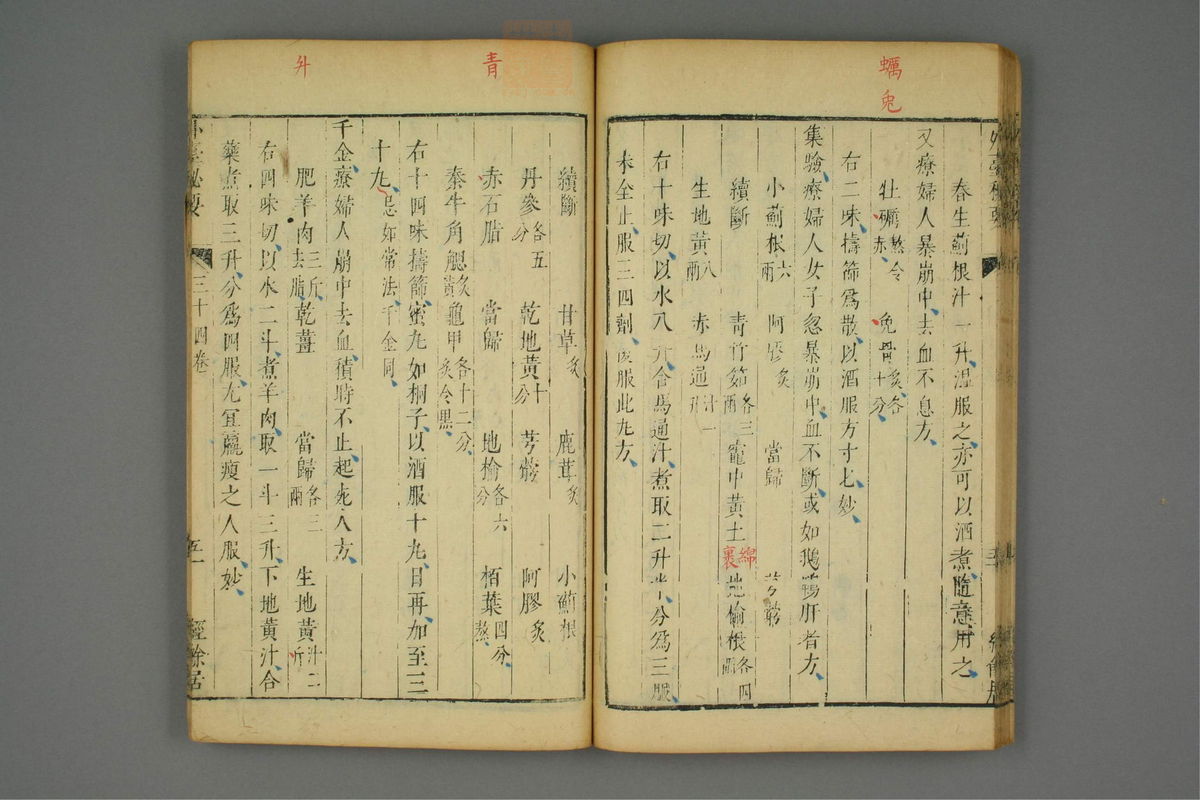 蠣
兔
春生薊根汁一升溫服之亦可以酒煮隨意用之
又療婦人暴崩中去血不息方
牡礪熬令赤 兔骨炙各十分
右二味擣篩為散以酒服方寸匕妙
集驗療婦人女子忽暴崩中血不斷或如鵝鴨肝者方
小薊根六兩 阿膠炙 當歸 芎藭
續斷 青竹茹各三兩 竈中黃土綿裹 地偷根各四兩
生地黃八兩 赤馬通汁一升
右十味切以水八升合馬通汁煮取二升半分為三服
未全止服三四劑後服此丸方
青
升
續斷 甘草炙 鹿茸炙 小薊根
丹參各五分 乾地黃十分 芎藭 阿膠炙
赤石脂 當歸 地榆各六分 栢葉四分熬
秦牛角䚡炙黃 龜甲各十二分炙令黑
右十四味擣篩蜜丸如桐子以酒服十丸日再加至三
十丸忌如常法千金同
千金療婦人崩中去血積時不止起死人方
肥羊肉三斤去脂 乾薑 當歸各三兩 生地黃汁二斤
右四味切以水二斗煮羊肉取一斗三升下地黃汁合
藥煮取三升分為四服尤宜羸瘦之人服妙
三十四卷
經餘居